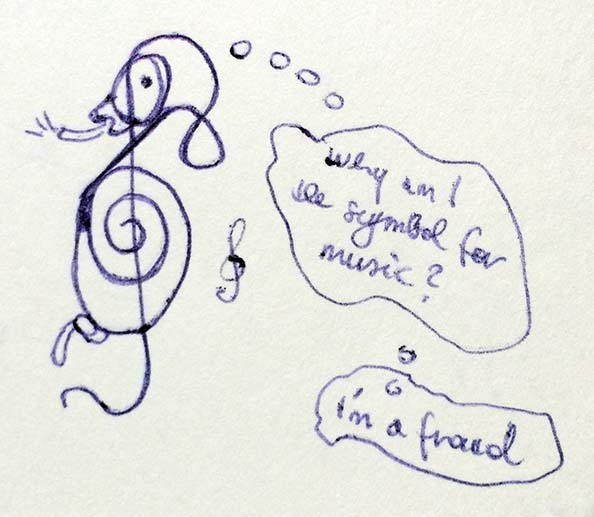 Why am I
the symbol for
music?
I'm a fraud